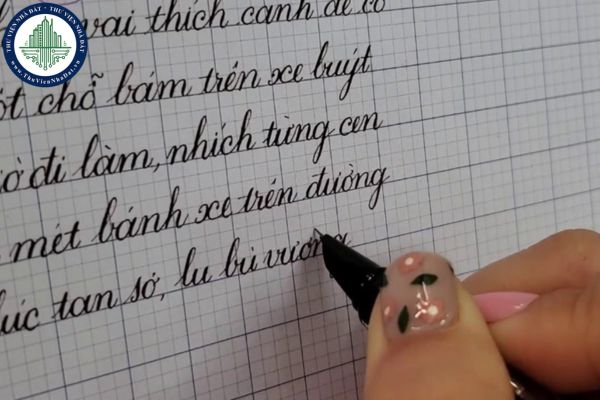 THƯ VIỆN NHÀ ĐẤT
www.ThuVienNhaDat.vn
vai thích cánh để có
ột chỗ bám trên xe buýt
iờ đi làm, nhích từng cen
mét bánh xe trên đường
úc tan sở, lu bù